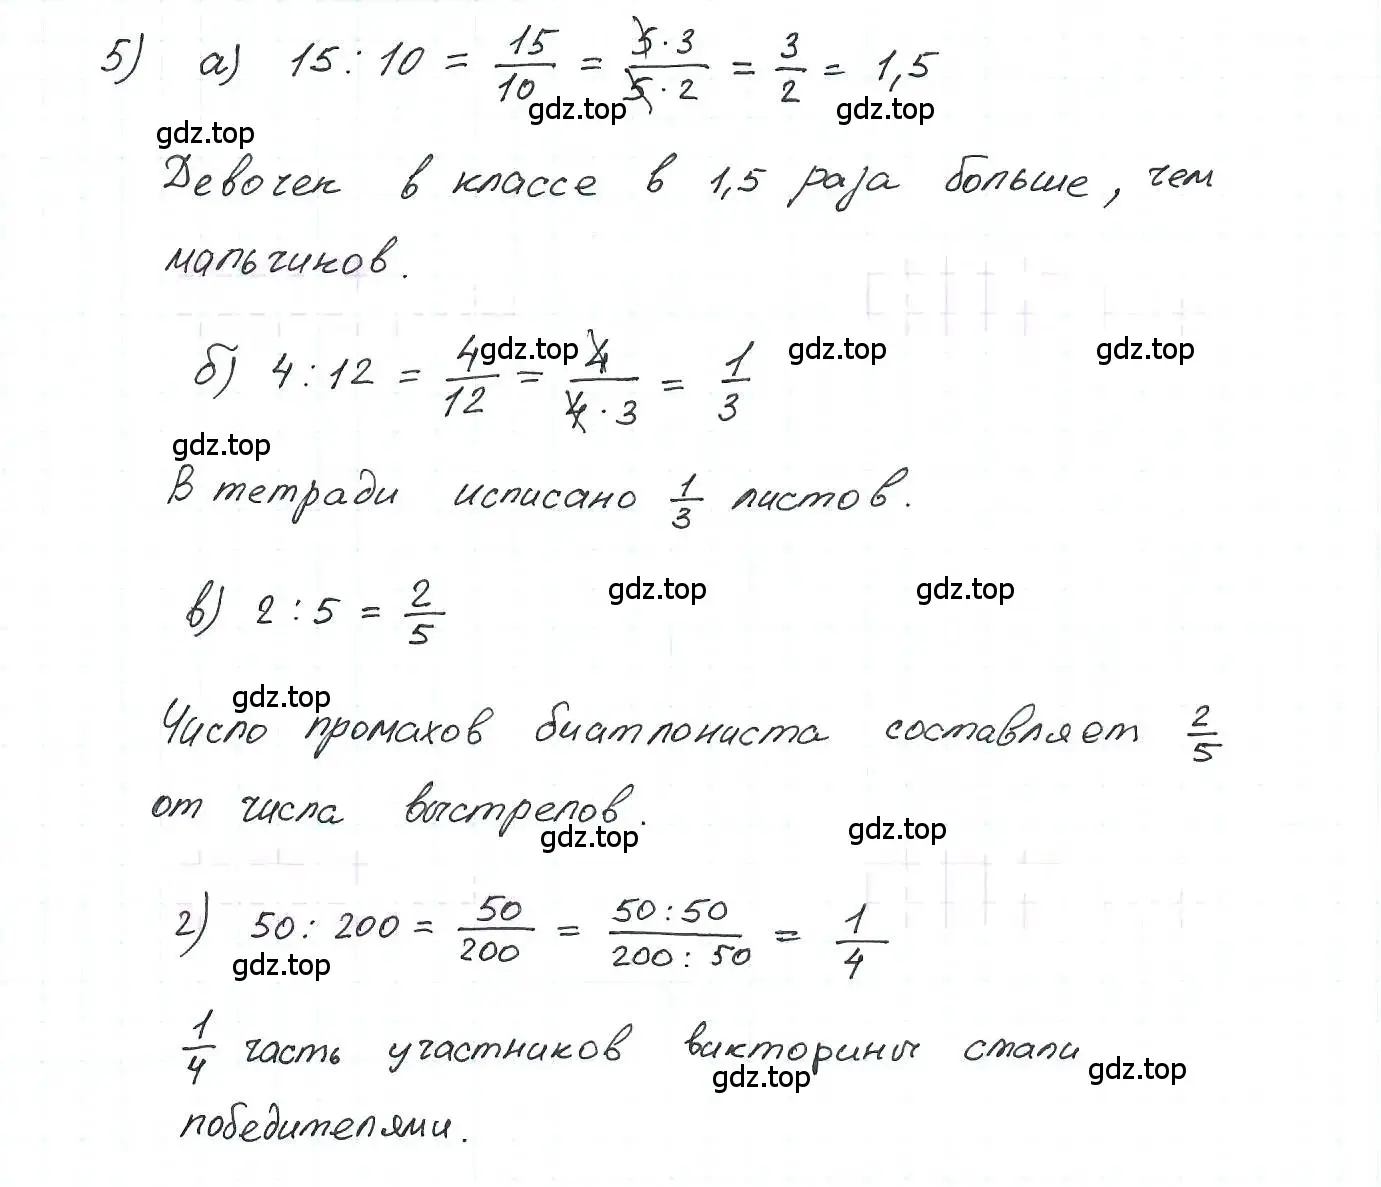 5) а) 15 : 10 = 15/10 = 5·3/5·2 = 3/2 = 1,5
gdz.top gdz.top
gdz.top
Девочек в классе в 1,5 раза больше, чем
мальчиков.
б) 4 : 12 = 4/12 = 4/4·3 = 1/3
gdz.top gdz.top gdz.top
gdz.top
В тетради исписано 1/3 листов.
в) 2 : 5 = 2/5
gdz.top gdz.top
gdz.top
Число промахов биатлониста составляет 2/5
от числа выстрелов.
gdz.top gdz.top
г) 50 : 200 = 50/200 = 50:50/200:50 = 1/4
gdz.top
1/4 часть участников викторины стали
gdz.top gdz.top
победителями.